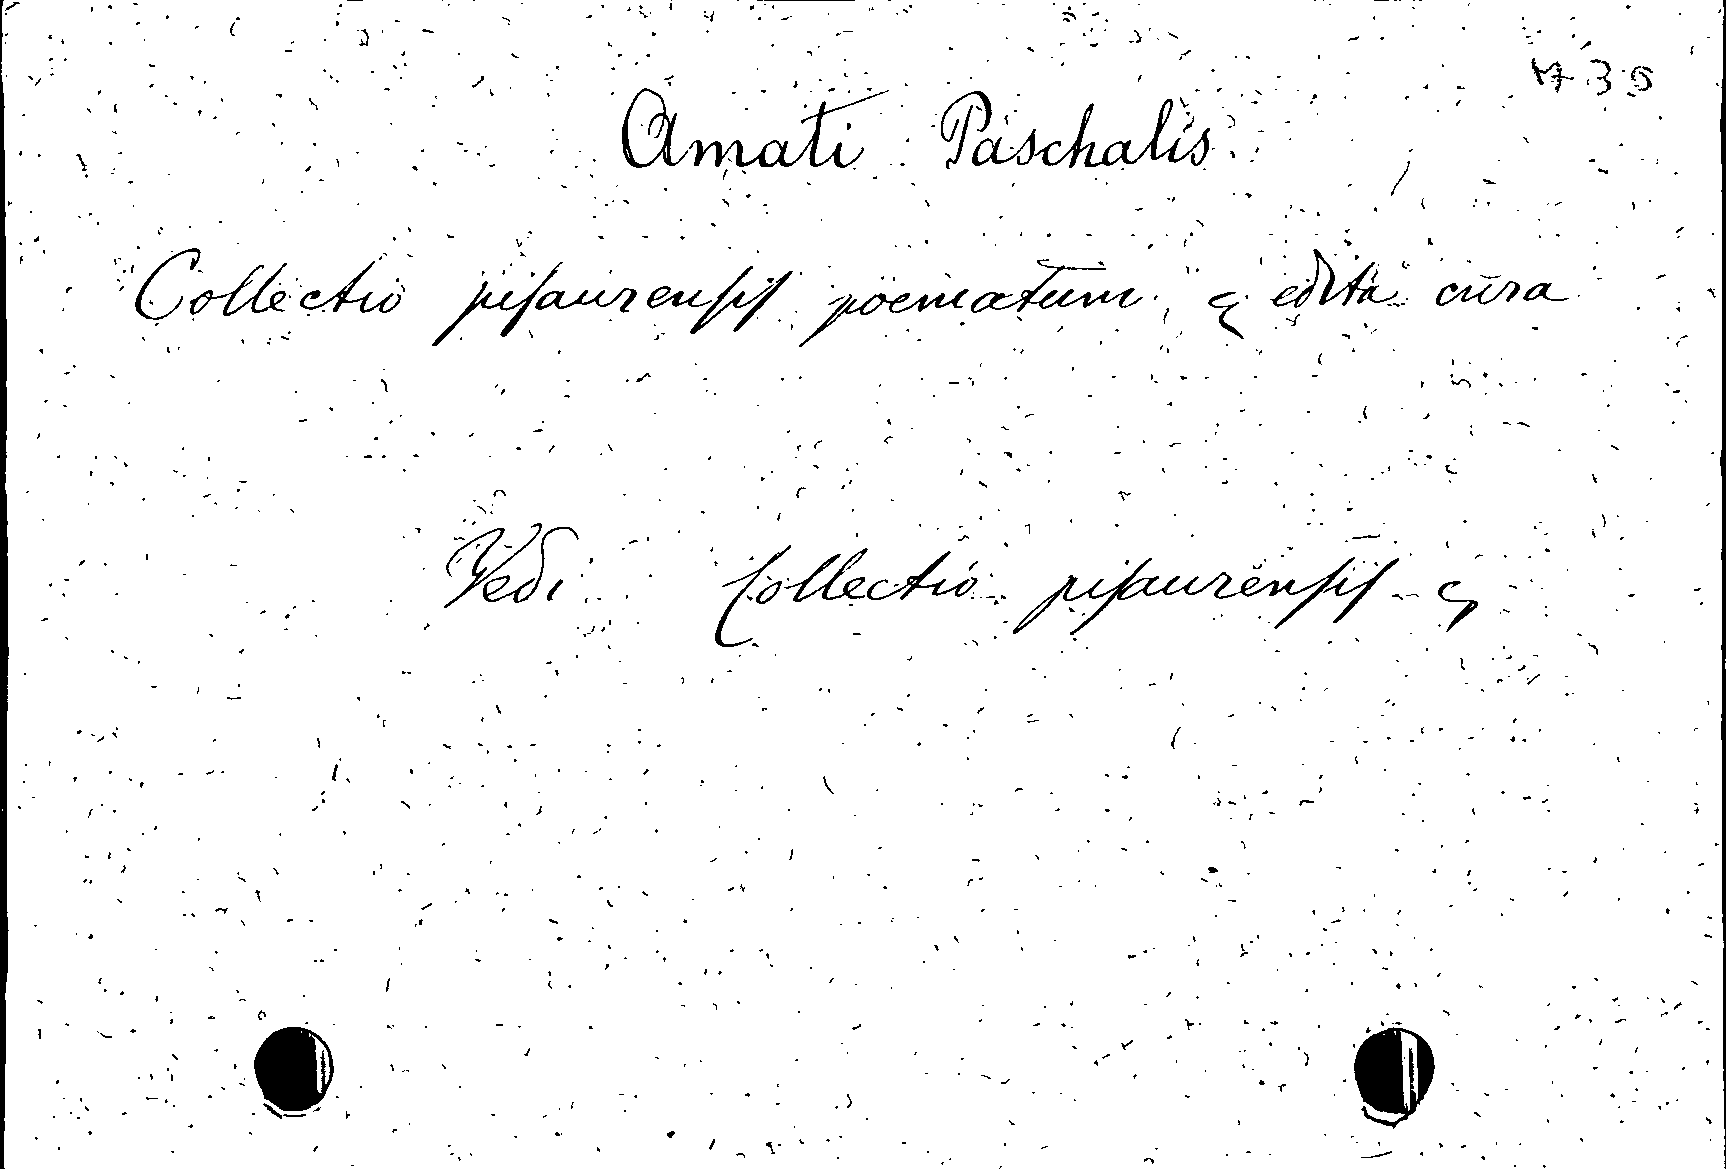 1735
Amati Paschalis
Collectio pisaurensis poematum, edita cura
Vedi Collectio pisaurensis